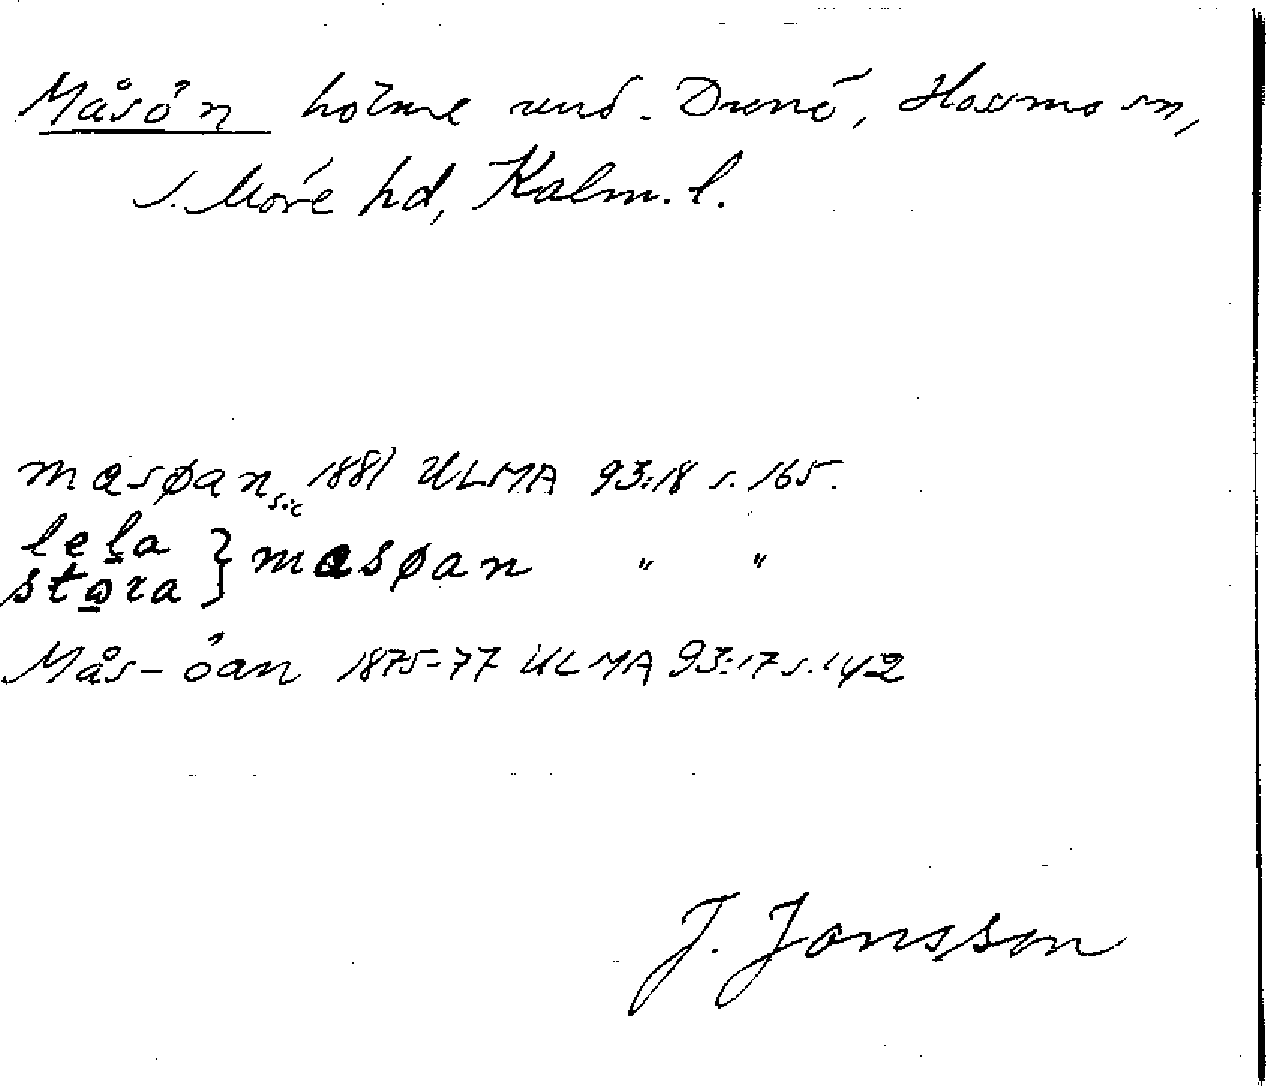 Måsön holme und. Drenö, Hossmo sn,
S. Möre hd, Kalm. l.
masøan sic 1881 ULMA 93:18 s. 165.
lela } masøan " "
stora
Mås-öan 1875-77 ULMA 93:17 s. 142
J. Jonsson